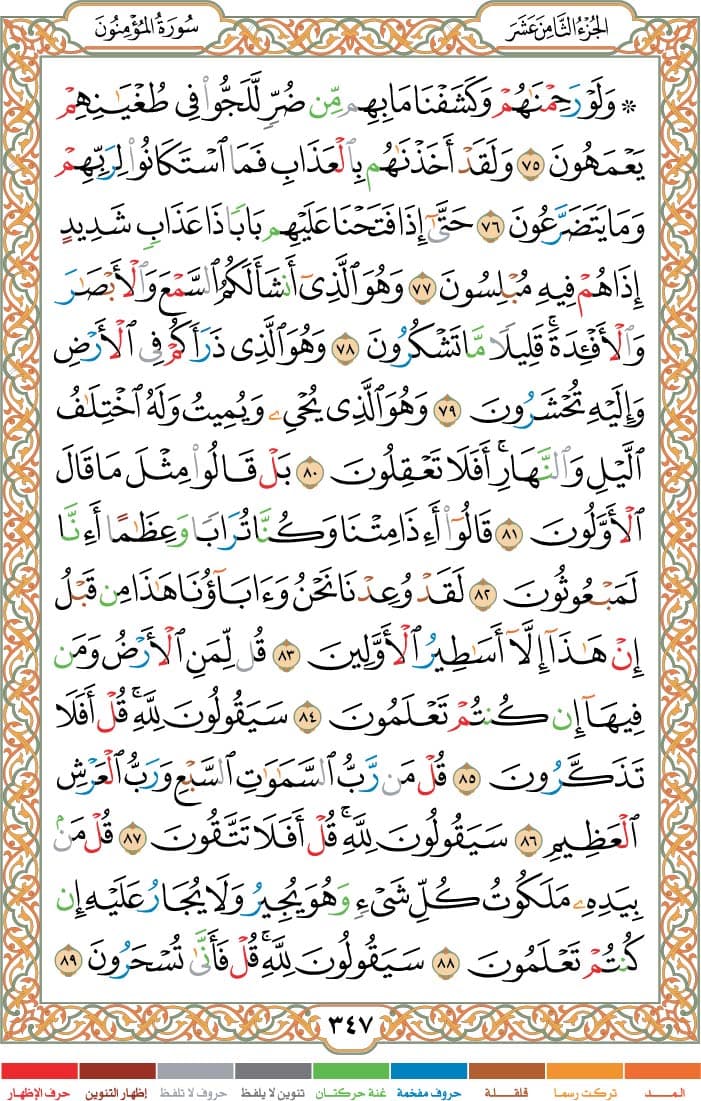 الجزء الثامن عشر
سورة المؤمنون
۞ وَلَوْ رَحِمْنَٰهُمْ وَكَشَفْنَا مَا بِهِم مِّن ضُرٍّ لَّلَجُّوا۟ فِى طُغْيَٰنِهِمْ
يَعْمَهُونَ ٧٥ وَلَقَدْ أَخَذْنَٰهُم بِٱلْعَذَابِ فَمَا ٱسْتَكَانُوا۟ لِرَبِّهِمْ
وَمَا يَتَضَرَّعُونَ ٧٦ حَتَّىٰٓ إِذَا فَتَحْنَا عَلَيْهِم بَابًا ذَا عَذَابٍ شَدِيدٍ
إِذَا هُمْ فِيهِ مُبْلِسُونَ ٧٧ وَهُوَ ٱلَّذِىٓ أَنشَأَ لَكُمُ ٱلسَّمْعَ وَٱلْأَبْصَٰرَ
وَٱلْأَفْـِٔدَةَ ۚ قَلِيلًا مَّا تَشْكُرُونَ ٧٨ وَهُوَ ٱلَّذِى ذَرَأَكُمْ فِى ٱلْأَرْضِ
وَإِلَيْهِ تُحْشَرُونَ ٧٩ وَهُوَ ٱلَّذِى يُحْىِۦ وَيُمِيتُ وَلَهُ ٱخْتِلَٰفُ
ٱلَّيْلِ وَٱلنَّهَارِ ۚ أَفَلَا تَعْقِلُونَ ٨٠ بَلْ قَالُوا۟ مِثْلَ مَا قَالَ
ٱلْأَوَّلُونَ ٨١ قَالُوٓا۟ أَءِذَا مِتْنَا وَكُنَّا تُرَابًا وَعِظَٰمًا أَءِنَّا
لَمَبْعُوثُونَ ٨٢ لَقَدْ وُعِدْنَا نَحْنُ وَءَابَآؤُنَا هَٰذَا مِن قَبْلُ
إِنْ هَٰذَآ إِلَّآ أَسَٰطِيرُ ٱلْأَوَّلِينَ ٨٣ قُل لِّمَنِ ٱلْأَرْضُ وَمَن
فِيهَآ إِن كُنتُمْ تَعْلَمُونَ ٨٤ سَيَقُولُونَ لِلَّهِ ۚ قُلْ أَفَلَا
تَذَكَّرُونَ ٨٥ قُلْ مَن رَّبُّ ٱلسَّمَٰوَٰتِ ٱلسَّبْعِ وَرَبُّ ٱلْعَرْشِ
ٱلْعَظِيمِ ٨٦ سَيَقُولُونَ لِلَّهِ ۚ قُلْ أَفَلَا تَتَّقُونَ ٨٧ قُلْ مَنۢ
بِيَدِهِۦ مَلَكُوتُ كُلِّ شَىْءٍ وَهُوَ يُجِيرُ وَلَا يُجَارُ عَلَيْهِ إِن
كُنتُمْ تَعْلَمُونَ ٨٨ سَيَقُولُونَ لِلَّهِ ۚ قُلْ فَأَنَّىٰ تُسْحَرُونَ ٨٩
٣٤٧
المـــد تركت رسما قلقـــلة حروف مفخمة غنة حركتان تنوين لا يلفظ حروف لا تلفظ إظهار التنوين حرف الإظهار